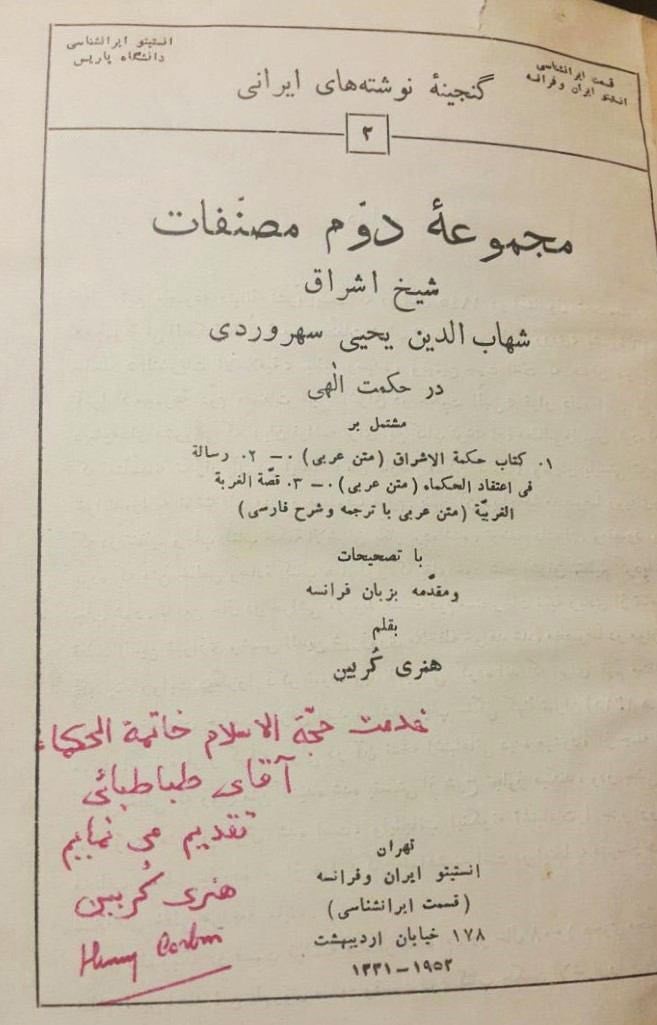 قسمت ایرانشناسی
انستیتو ایران و فرانسه
انستیتو ایرانشناسی
دانشگاه پاریس
گنجینهٔ نوشته‌های ایرانی
۲
مجموعهٔ دوّم مصنّفات
شیخ اشراق
شهاب الدین یحیی سهروردی
در حکمت الٰهی
مشتمل بر
۱. کتاب حکمة الاشراق (متن عربی) ۰ – ۲. رسالة
فی اعتقاد الحکماء (متن عربی) ۰ – ۳. قصّة الغربة
الغربیّة (متن عربی با ترجمه و شرح فارسی)
با تصحیحات
و مقدّمه بزبان فرانسه
بقلم
هنری کُربین
خدمت حجّة الاسلام خاتمة الحکماء
آقای طباطبائی
تقدیم می نماییم
هنری کُربین
Henry Corbin
تهران
انستیتو ایران و فرانسه
(قسمت ایرانشناسی)
۱۷۸ خیابان اردیبهشت
۱۳۳۱–۱۹۵۲